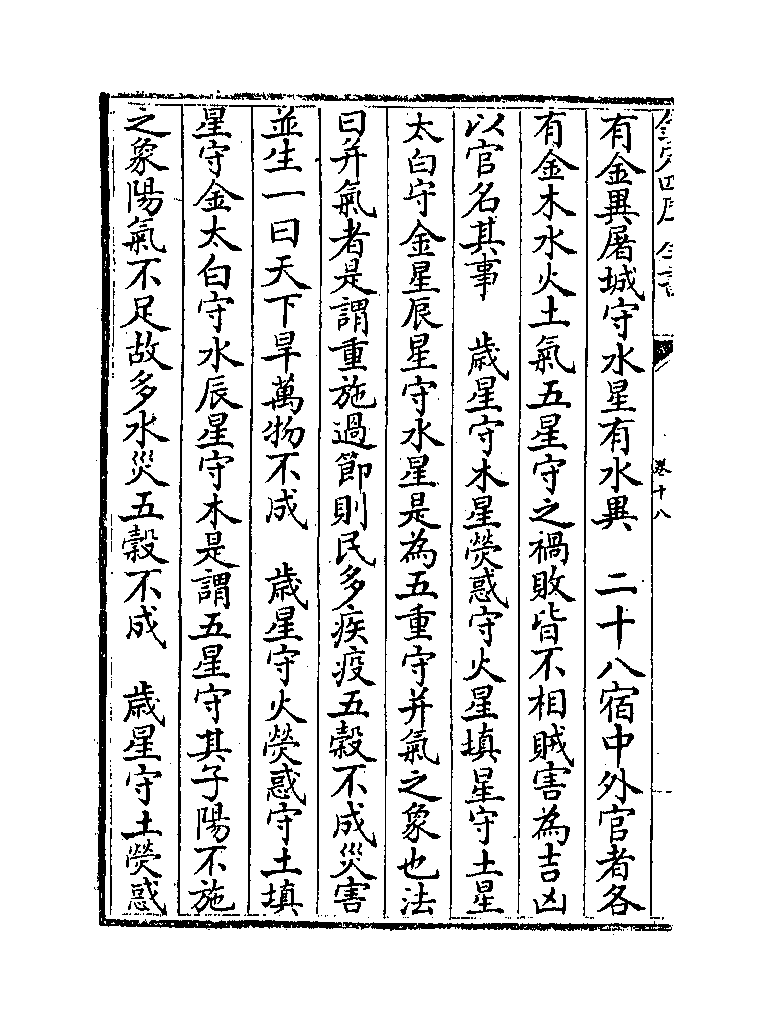 卷十八
有金異屠城守水星有水異　二十八宿中外官者各
有金木水火土氣五星守之禍敗皆不相賊害為吉凶
以官名其事　歲星守木星熒惑守火星填星守土星
太白守金星辰星守水星是為五重守并氣之象也法
曰并氣者是謂重施過節則民多疾疫五穀不成災害
並生一曰天下旱萬物不成　歲星守火熒惑守土填
星守金太白守水辰星守木是謂五星守其子陽不施
之象陽氣不足故多水災五穀不成　歲星守土熒惑